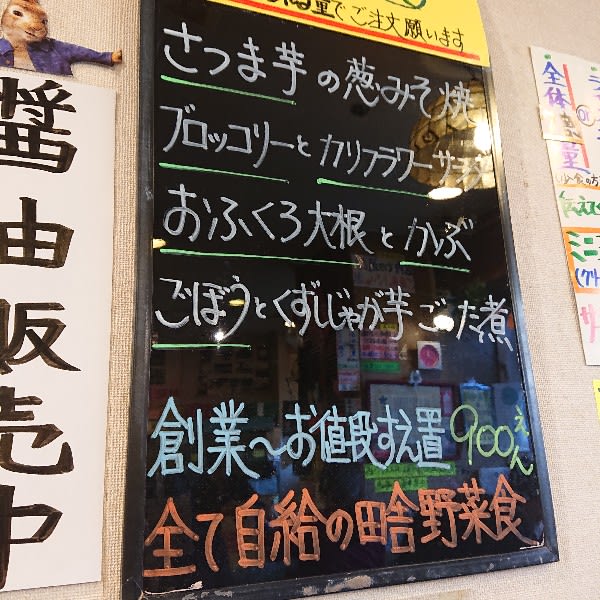 醤油販売中
でご注文願います
さつま芋の葱みそ焼
ブロッコリーとカリフラワーサラダ
おふくろ大根とかぶ
ごぼうとくずじゃが芋ごった煮
創業〜お値段すえ置900えん
全て自給の田舎野菜食
全体
ミニ